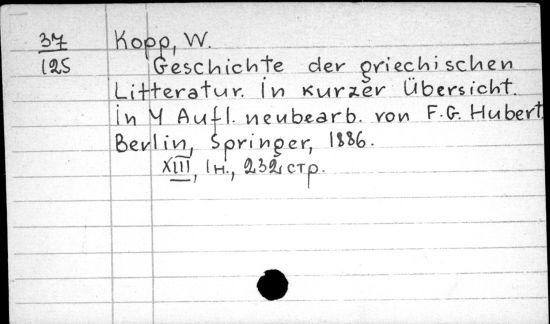 37 Kopp, W.
125 Geschichte der griechischen
Litteratur. in kurzer Übersicht.
in 4 Aufl. neubearb. von F.G. Hubert.
Berlin, Springer, 1886.
XIII, 1н., 232 стр.